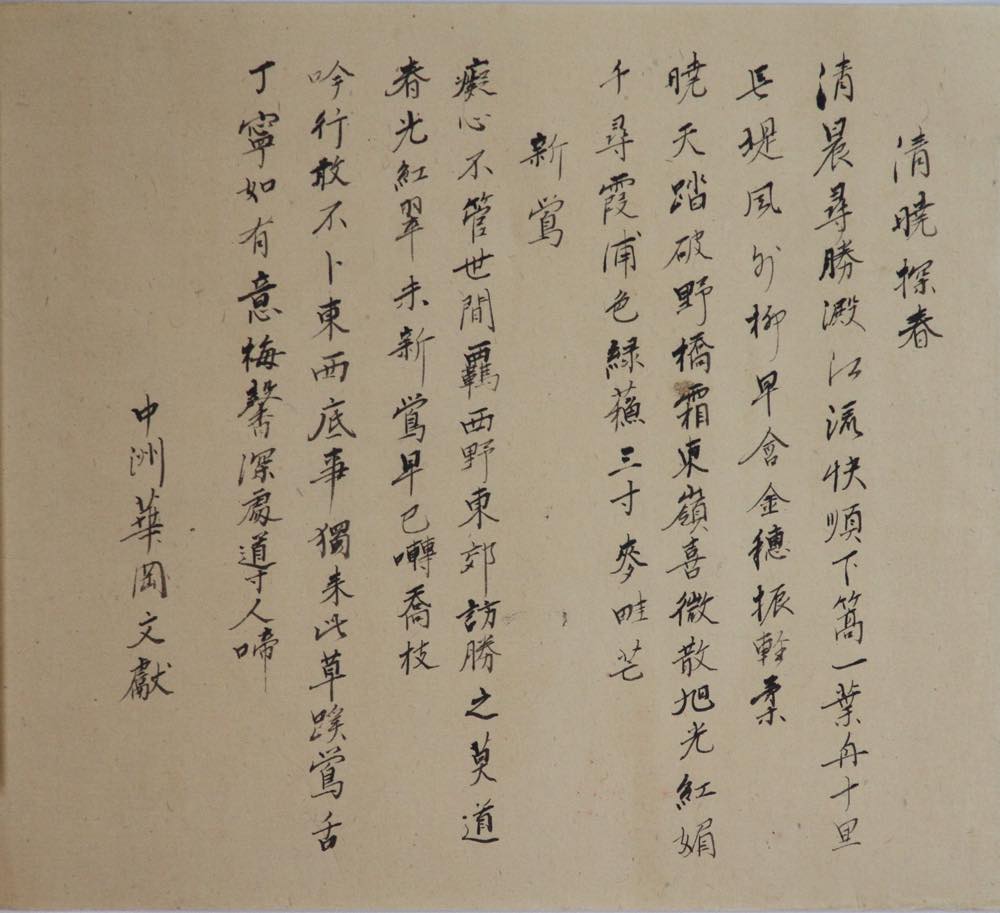 清曉探春
清晨尋勝澱江流快順下篙一葉舟十里
長堤風外柳早會金穗振軽柔
曉天踏破野橋霜東嶺喜微散旭光紅媚
千尋霞浦色緑蘓三寸麥畦芒
新鶯
癡心不管世間羈西野東郊訪勝之莫道
春光紅翠未新鶯早已囀喬枝
吟行敢不卜東西底事獨来此草蹊鶯舌
丁寧如有意梅馨深處導人啼
中洲華岡文獻